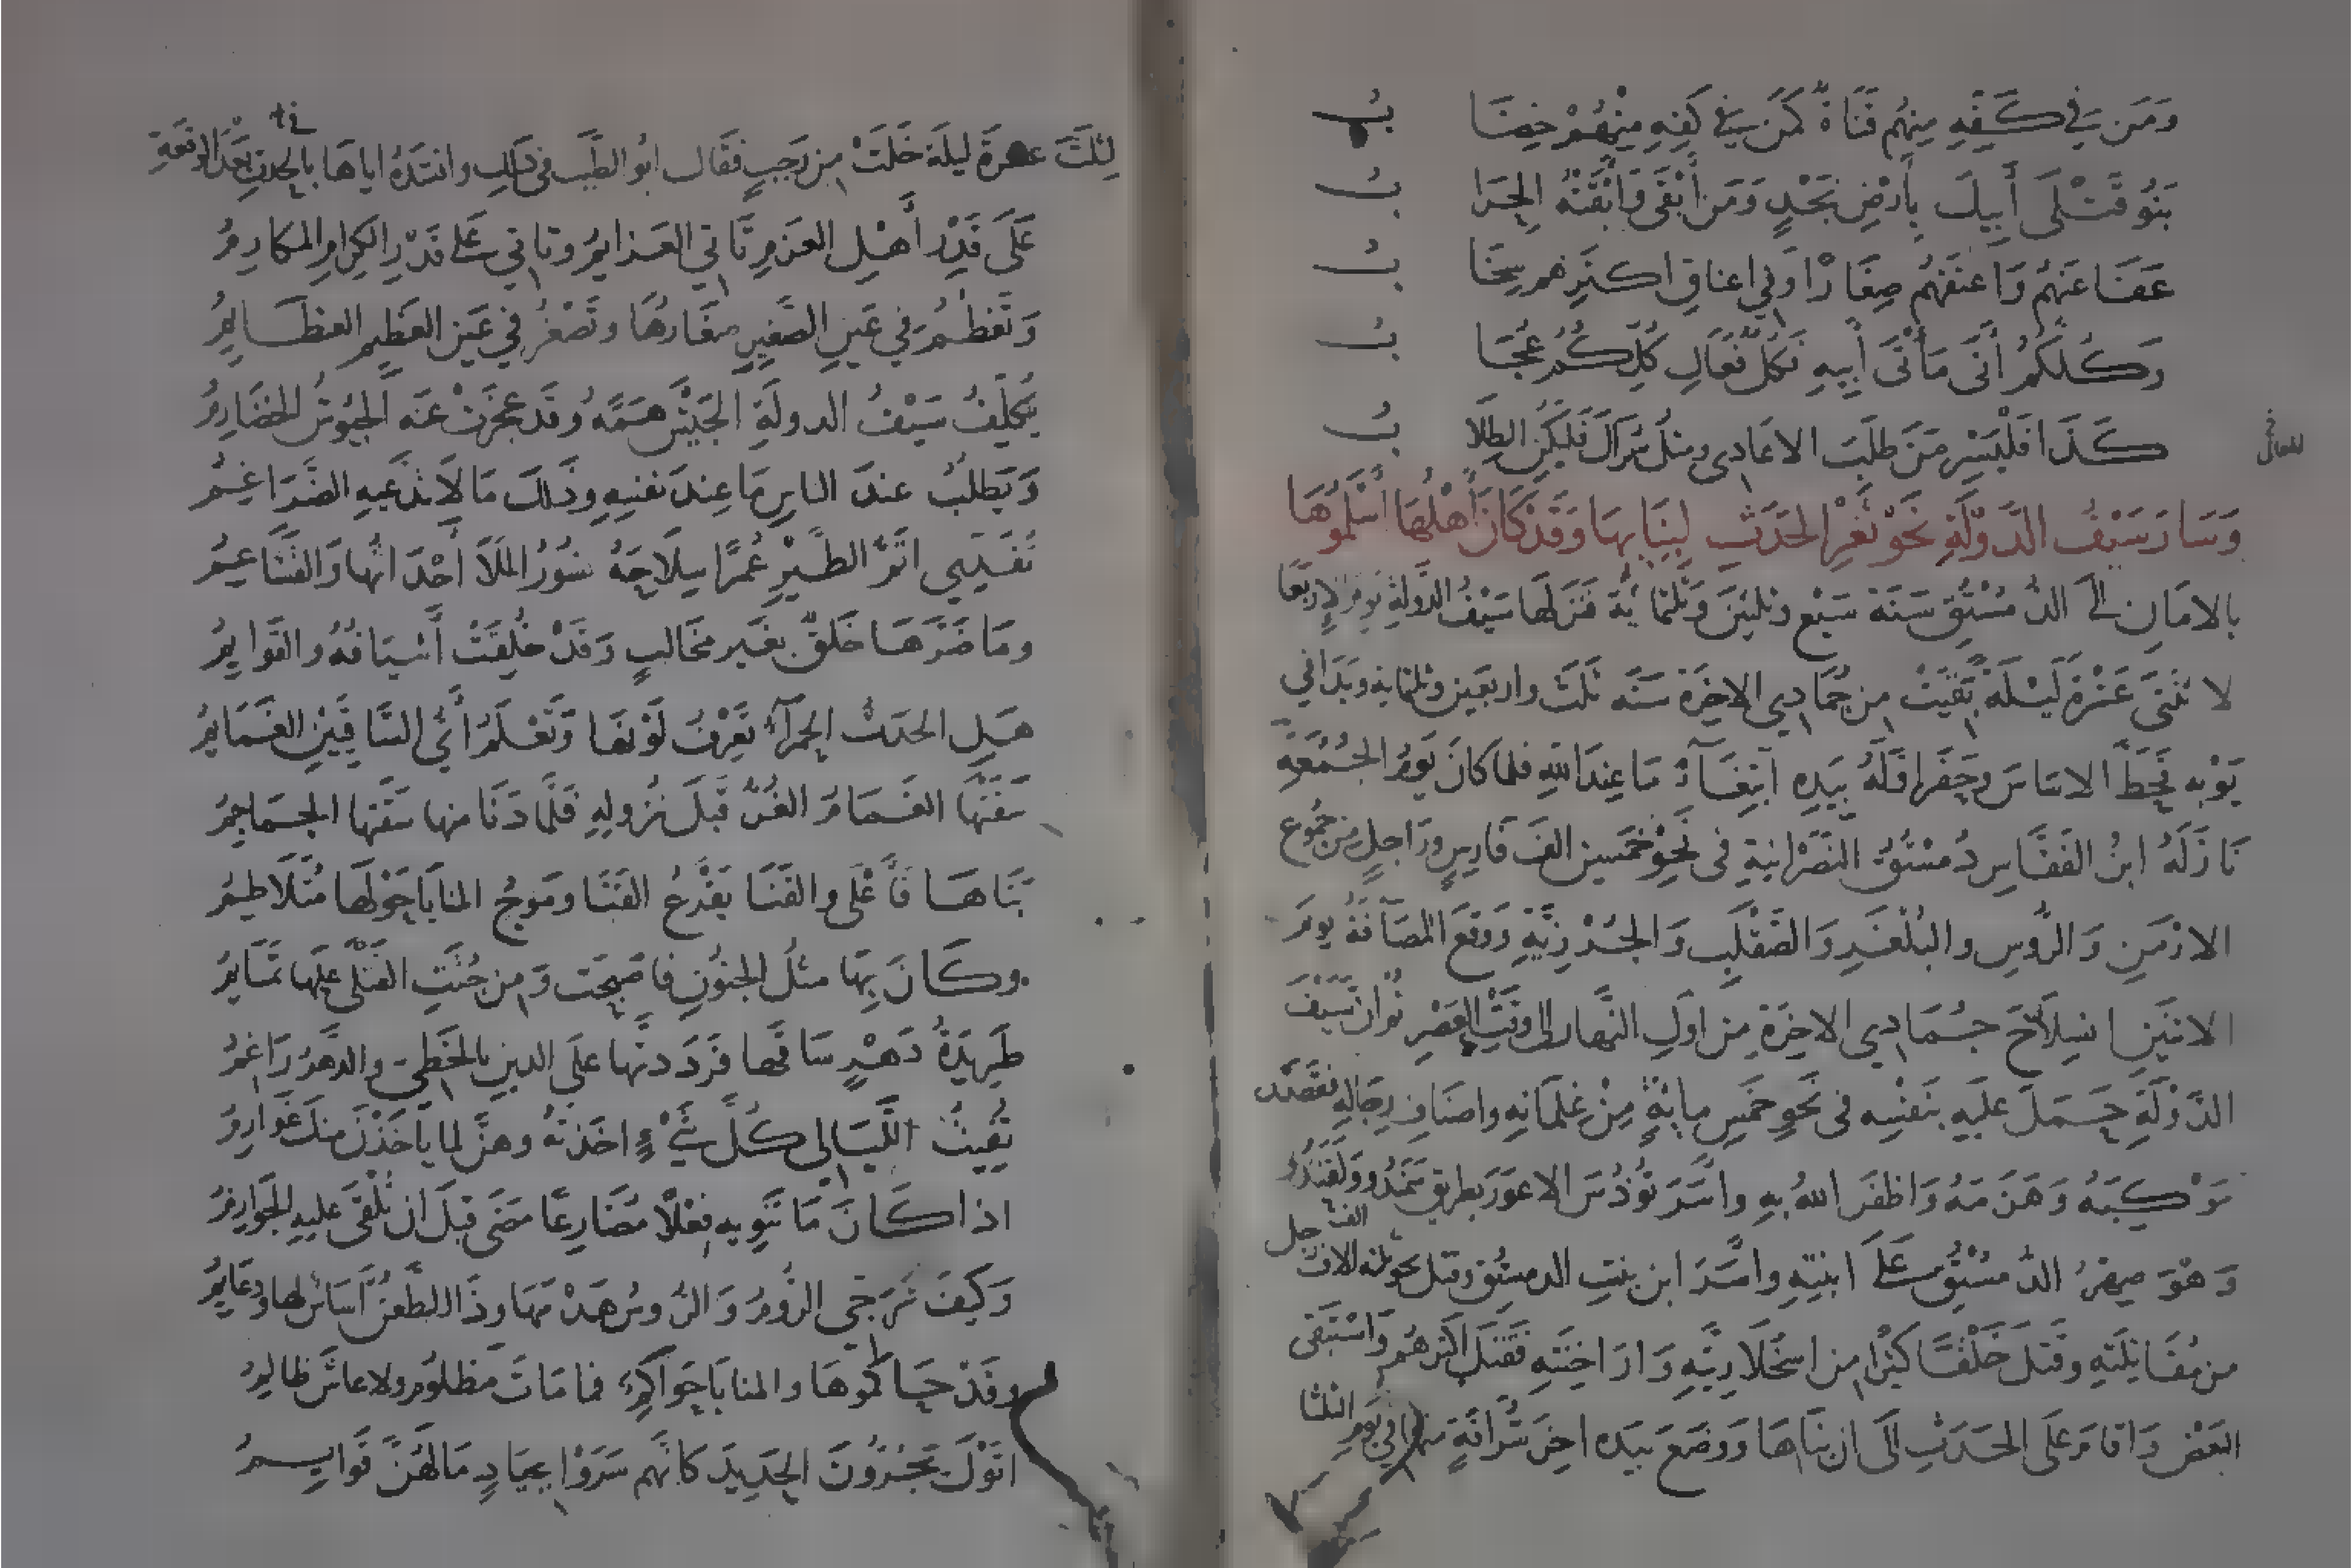 وَمَن في كَفِّهِ مِنهُم قَنَاةٌ كَمَن في كَفِّهِ مِنْهُمْ خِضَا بُ
بَنُو قَتْلَى أَبِيكَ بِأَرْضِ نَجْدٍ وَمَن أَبْقَى وَأَبْقَتْهُ الحِرَا بُ
عَفَا عَنهُم وَأَعتَقَهُم صِغَارًا وَفي اعناقِ اكثرِهم سِخَا بُ
وَكُلُّكُمُ أَتَى مَأْتَى أَبِيهِ فَكُلُّ فَعَالِ كُلِّكُمُ عُجَا بُ
كَذَا فَلْيَسْرِ مَنْ طَلَبَ الاعَادِى ومثلَ سُرَاكَ فَليَكُنِ الطِّلَا بُ
وَسَارَ سَيْفُ الدَّوْلَةِ نَحْوَ ثَغْرِ الحَدَثِ لِبِنَائِهَا وَقَدْ كَانَ أَهْلُهَا أَسْلَمُوهَا
بالامَانِ الى الدُّمُسْتُقِ سَنَةَ سَبْعٍ وثلثينَ وثلثمائةٍ فَنَزلَهَا سَيْفُ الدَّولةِ يومَ الاربعَا
لاثنتَى عَشْرَةَ لَيْلَةً بَقِيَتْ من جُمَادِي الاخِرَةِ سَنَةَ ثَلثٍ واربَعين وثلثمايةٍ وبَدَا في
يَوْمِهِ فَخَطَّ الاسَاسَ وحَفَرَ اوّلَهُ بِيَدِهِ ابتِغَآءَ مَا عِندَ اللهِ فلما كَانَ يَوْمُ الجُمُعَةِ
نَازَلَهُ ابنُ الفَقَّاسِ دُمسْتُقُ النَّصْرَانيةِ فى نَحْوِ خَمسين الفَ فَارِسٍ ورَاجِلٍ من جُمُوعِ
الارْمَنِ وَالرُّوسِ والبُلْغَرِ وَالصَّقْلَبِ وَالخَزَرِيَّةِ وَوَقَعَ المصَافَّةُ يومَ
الاثنَينِ انسِلَاخَ جُمَادِي الاخِرَةِ مِن اوّلِ النَّهارِ الى وَقتِ العَصْرِ ثُمّ ان سَيْفَ
الدَّوْلَةِ حَمَلَ عَليهِ بنَفسِه فى نَحوِ خَمسِ مِايَةٍ مِنْ غِلمَانِهِ واصنَافِ رِجَالِهِ فَقَصَدَ
مَوْكِبَهُ وَهَزَمَهُ وَاظفَرَ اللهُ بهِ واسَرَ تُوذُسَ الاعوَرَ بطرِيقَ سَمَندُو ولَقَندُو
وَهْوَ صِهْرُ الدُّمُسْتُقِ عَلَى ابنتِهِ واسَرَ ابن بنتِ الدمستُقِ وقتل نحو ثلثة الاف رجل
من مُقَاتِلَتِهِ وقَتَلَ خَلْقًا كَثيرًا مِن اسخَلَارِيَّتِهِ وَارَاخِنَتِهِ فَقَتَلَ اكثرهُم وَاسْتَبقَى
البَعْضَ وَاقامَ عَلى الحَدَثِ الَى ان بَنَاهَا وَوضَعَ بيَدِه اخِرَ شُرَافَةٍ منها في يَومِ الثلثا
لِثَلثَ عشرَةَ ليلَةً خَلَتْ من رَجَبٍ فَقَال ابُو الطَّيِّب فى ذَلِك وانشَدَهُ اياهَا بالحَدثِ بَعْدَ الوقعَةِ
عَلَى قَدْرِ أَهْلِ العَزمِ تَاتي العَزايمُ وتاتي عَلى قَدْرِ الكِرَامِ المكارِمُ
وَتَعظُمُ في عَينِ الصَّغيرِ صغَارُهَا وتَصْغُرُ في عَينِ العَظِيمِ العظَايمُ
يُكلِّفُ سَيْفُ الدولَةِ الجَيْشَ هَمَّهُ وقَد عجَزَتْ عَنه الجُيُوشُ الخضَارِمُ
وَيَطلبُ عندَ الناسِ مَا عِندَ نَفسِهِ وذَلكَ مَا لا تدَّعيهِ الضَّرَاغِمُ
تُفَدِّي اتَمُّ الطَّيرِ عُمرًا سِلَاحَهُ نسُورُ الملَا أَحْدَاثُها وَالقَشَاعِمُ
ومَا ضَرَّهَا خَلقٌ بغَيرِ مخَالبٍ وَقَدْ خُلِقَتْ أَسْيَافُهُ والقَوايمُ
هَلِ الحدَثُ الحَمرَآءُ تَعرِفُ لَوْنهَا وَتَعْلَمُ أَيُّ السَّاقِيَيْنِ الغَمَايمُ
سَقَتهَا الغَمَامُ الغُرُّ قَبلَ نُزولِهِ فَلَمَّا دَنَا منها سَقَتها الجَمَاجِمُ
بَنَاهَا فَأَعْلَى والقَنَا يَقْرَعُ القَنَا ومَوجُ المنَايَا حَوْلَهَا مُتَلَاطِمُ
وكَانَ بِهَا مثلُ الجنُونِ فاصَبحَت وَمِن جُثَثِ القَتْلَى عَليهَا تَمَايمُ
طَرِيدَةُ دَهْرٍ سَاقَها فَرَدَدتَّها علَى الدينِ بالخَطِّيِّ والدَّهرُ رَاغمُ
تُفيتُ اللَّيَالِى كُلَّ شَىْءٍ اخَذتَهُ وهنَّ لما يَاخذْنَ منكَ غَوارِمُ
اذا كَانَ مَا تَنويهِ فِعْلًا مضَارِعًا مَضَى قبلَ ان تُلقَى عليهِ الجَوازِمُ
وَكَيفَ تُرَجّي الرُّومُ وَالرُّوسُ هَدْمَهَا وذَا الطَّعنُ أَسَاسٌ لها ودعَايمُ
وقَدْ حَاكَمُوهَا والمنايَا حَوَاكِمٌ فما مَاتَ مَظلُومٌ ولا عاشَ ظالمُ
اتَوْكَ يَجُرُّونَ الحَدِيدَ كانَّهم سَرَوْا بِجيَادٍ مَا لَهُنَّ قَوايمُ